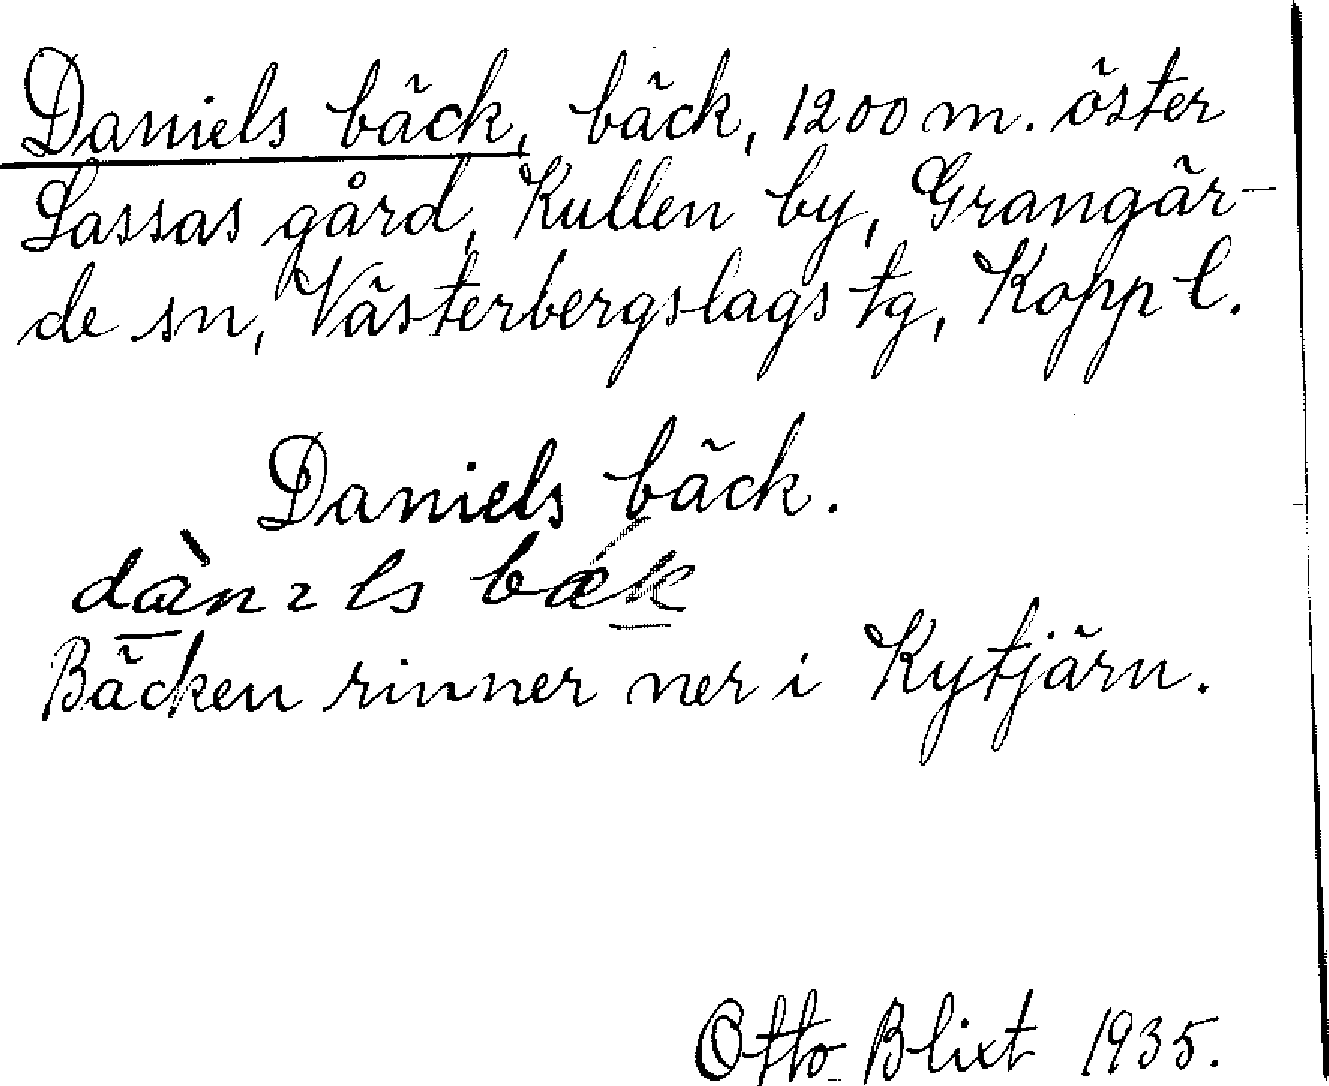 Daniels bäck, bäck, 1200 m. öster
Lassas gård, Kullen by, Grangär-
de sn, Västerbergslags tg, Kopp l.
Daniels bäck.
dànɩls bǽk
Bäcken rinner ner i Kytjärn.
Otto Blixt 1935.